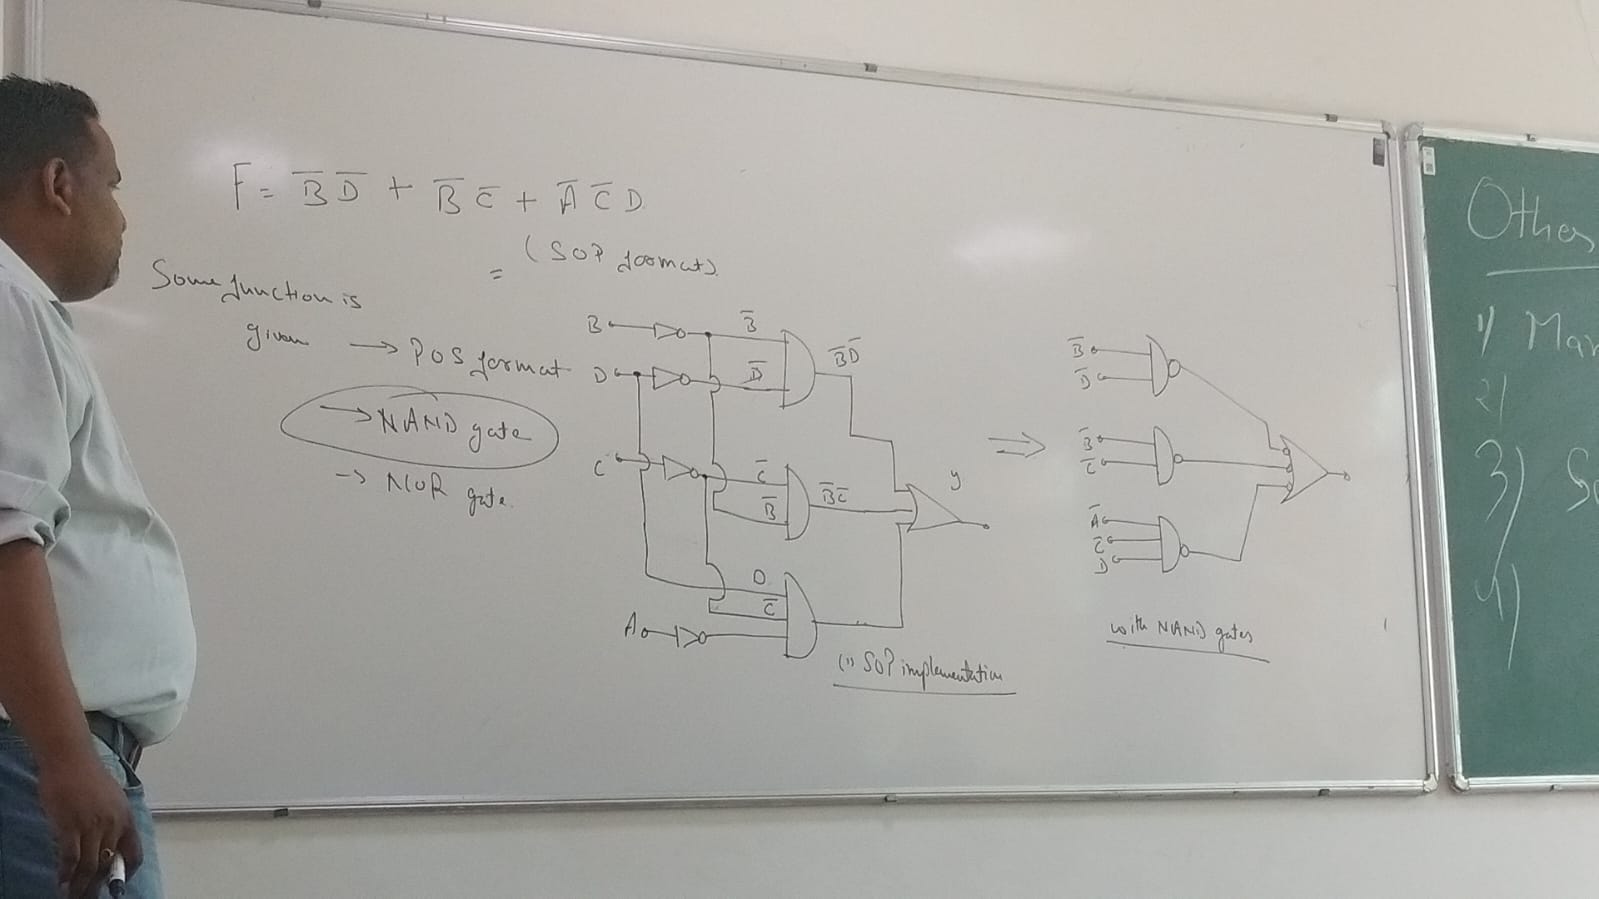 F = B̅ D̅ + B̅ C̅ + A̅ C̅ D
= (SOP format)
Some function is
given → POS format
→ NAND gate
→ NOR gate.
B
B̅
D
D̅
B̅D̅
C
C̅
B̅
B̅C̅
y
D
C̅
A
(1) SOP implementation
⇒
B̅
D̅
B̅
C̅
A̅
C̅
D
with NAND gates
Other
1) Mar
2)
3) S
4)